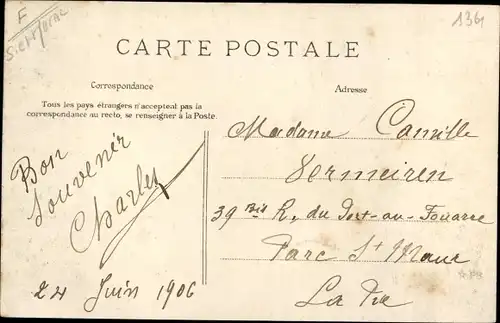 F
1361
CARTE POSTALE
Correspondance
Adresse
Tous les pays étrangers n'acceptent pas la
correspondance au recto, se renseigner à la Poste.
Bon
Souvenir
Charley
24 Juin 1906
Madame Camille
Vermeiren
39 Bis R. du Port-au-Fouarre
Parc St Maur
La